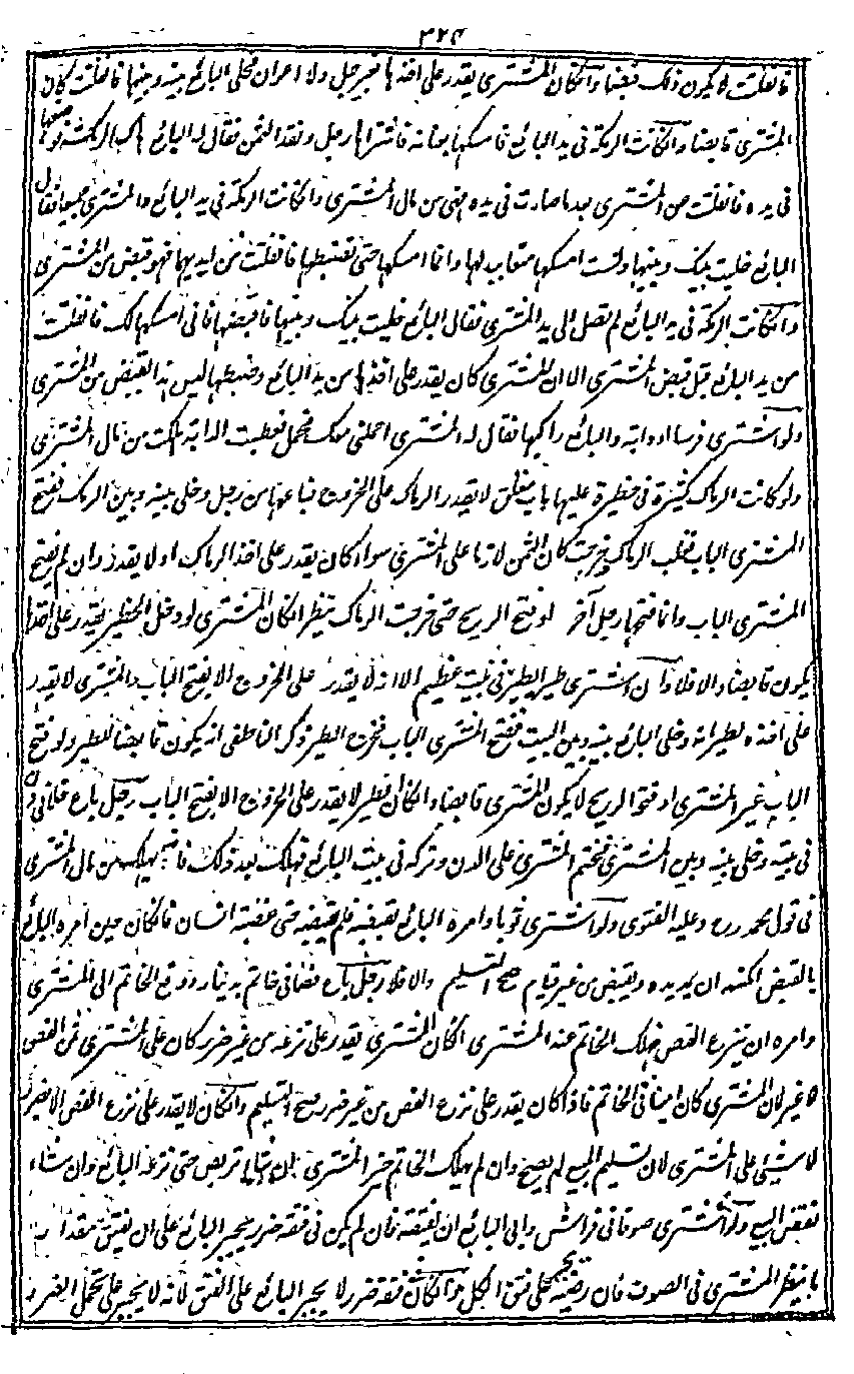 ٣٢٤
فانفلتت لا يكون ذلك قبضا وان كان المشترى يقدر على اخذها بغير حبل ولا اعوان فخلى البائع بينه وبينها فانفلتت كان
المشترى قابضا وان كانت الرمكة فى يد البائع فامسكها بعنانه فاشتراها رجل ونقد الثمن فقال له البائع هاك الرمكة
فى يده فانفلتت من المشترى بعد ما صارت فى يده فهى من مال المشترى وان كانت الرمكة فى يد البائع والمشترى جميعا فقال
البائع خليت بينك وبينها ولست امسكها منعا لها وانما امسكها حتى تضبطها فانفلتت من ايديهما فهو قبض من المشترى
وان كانت الرمكة فى يد البائع لم تصل الى يد المشترى فقال البائع خليت بينك وبينها فاقبضها فانى امسكها لك فانفلتت
من يد البائع قبل قبض المشترى الا ان المشترى كان يقدر على اخذها من يد البائع وضبطها ليس هذا القبض من المشترى
ولو اشترى فرسا او دابة والبائع راكبها فقال له المشترى احملنى معك فحمل فعطبت الدابة هلكت من مال المشترى
ولو كانت الرماك كثيرة فى حظيرة عليها باب مغلق لا يقدر الرماك على الخروج فباعها من رجل وخلى بينه وبين الرمك ففتح
المشترى الباب فغلب الرماك وخرجت كان الثمن لازما على المشترى سواء كان يقدر على اخذ الرماك او لا يقدر وان لم يفتح
المشترى الباب وانما فتحها رجل آخر او فتح الريح حتى خرجت الرماك ينظر ان كان المشترى لو دخل الحظيرة يقدر على اخذها
يكون قابضا والا فلا وان اشترى طيرا يطير فى بيت عظيم الا انه لا يقدر على الخروج الا بفتح الباب والمشترى لا يقدر
على اخذه لطيرانه وخلى البائع بينه وبين البيت ففتح المشترى الباب فخرج الطير ذكر الناطفى انه يكون قابضا للطير ولو فتح
الباب غير المشترى او فتحه الريح لا يكون المشترى قابضا وان كان الطير لا يقدر على الخروج الا بفتح الباب رجل باع خلا فى دن
فى بيته وخلى بينه وبين المشترى فختم المشترى على الدن وتركه فى بيت البائع فهلك بعد ذلك فانه يهلك من مال المشترى
فى قول محمد رح وعليه الفتوى ولو اشترى ثوبا وامره البائع بقبضه فلم يقبضه حتى غصبه انسان فان كان حين امره البائع
بالقبض امكنه ان يمد يده ويقبض من غير قيام صح التسليم والا فلا رجل باع فصا فى خاتم بدينار ودفع الخاتم الى المشترى
وامره ان ينزع الفص فهلك الخاتم عند المشترى ان كان المشترى يقدر على نزعه من غير ضرر كان على المشترى ثمن الفص
لا غير لان المشترى كان امينا فى الخاتم فاذا كان يقدر على نزع الفص من غير ضرر صح التسليم وان كان لا يقدر على نزع الفص الا بضرر
لا شيئ على المشترى لان تسليم المبيع لم يصح وان لم يهلك الخاتم خير المشترى ان شاء تربص حتى نزعه البائع وان شاء
نقض البيع ولو اشترى صوفا فى فراش وابى البائع ان يفتقه فان لم يكن فى فتقه ضرر يجبر البائع على ان يفتق مقدار
ما ينظر المشترى فى الصوف فان رضيه يجبر على فتق الكل وان كان فى فتقه ضرر لا يجبر البائع على الفتق لانه لا يجبر على تحمل الضرر